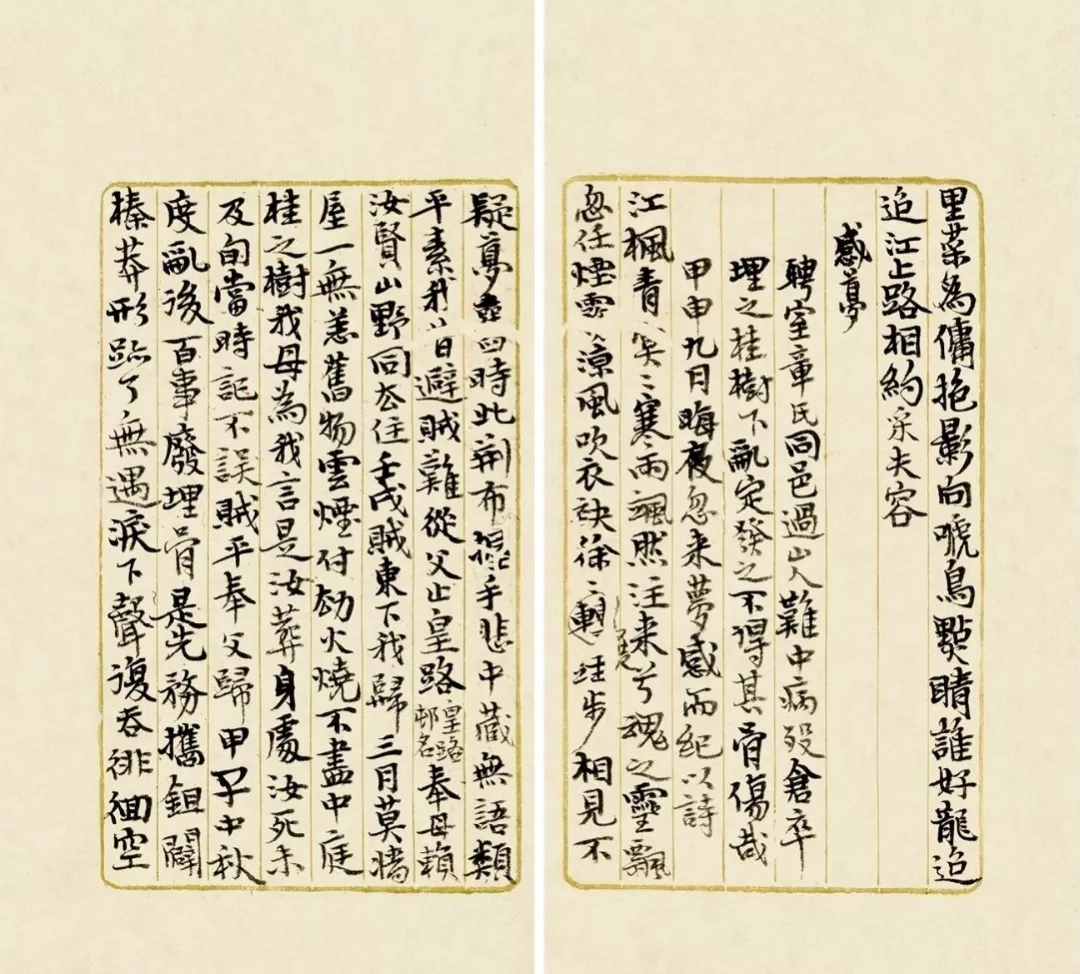 里菜為傭抱影向喚鳥點睛誰好龍迢
迢江上路相約采夫容
感夢
聘室章氏同邑過山人難中病歿倉卒
埋之桂樹下亂定發之不得其骨傷哉
甲申九月晦夜忽来夢感而紀以詩
江楓青冥冥寒雨颯然注来兮魂之靈飄
忽任煙雲涼風吹衣袂徐徐轉步相見不
疑夢 四時此荊布 手悲中藏無語類
平素我昔避賊難從父止皇路皇路邨名奉母賴
汝賢山野同去住壬戌賊東下我歸三月莫墻
屋一無恙舊物雲煙付劫火燒不盡中庭
桂之樹我母為我言是汝葬身處汝死未
及旬當時記不誤賊平奉父歸甲子中秋
度亂後百事廢埋骨是先務攜鉏闢
榛莽形跡了無遇淚下聲復吞徘徊空